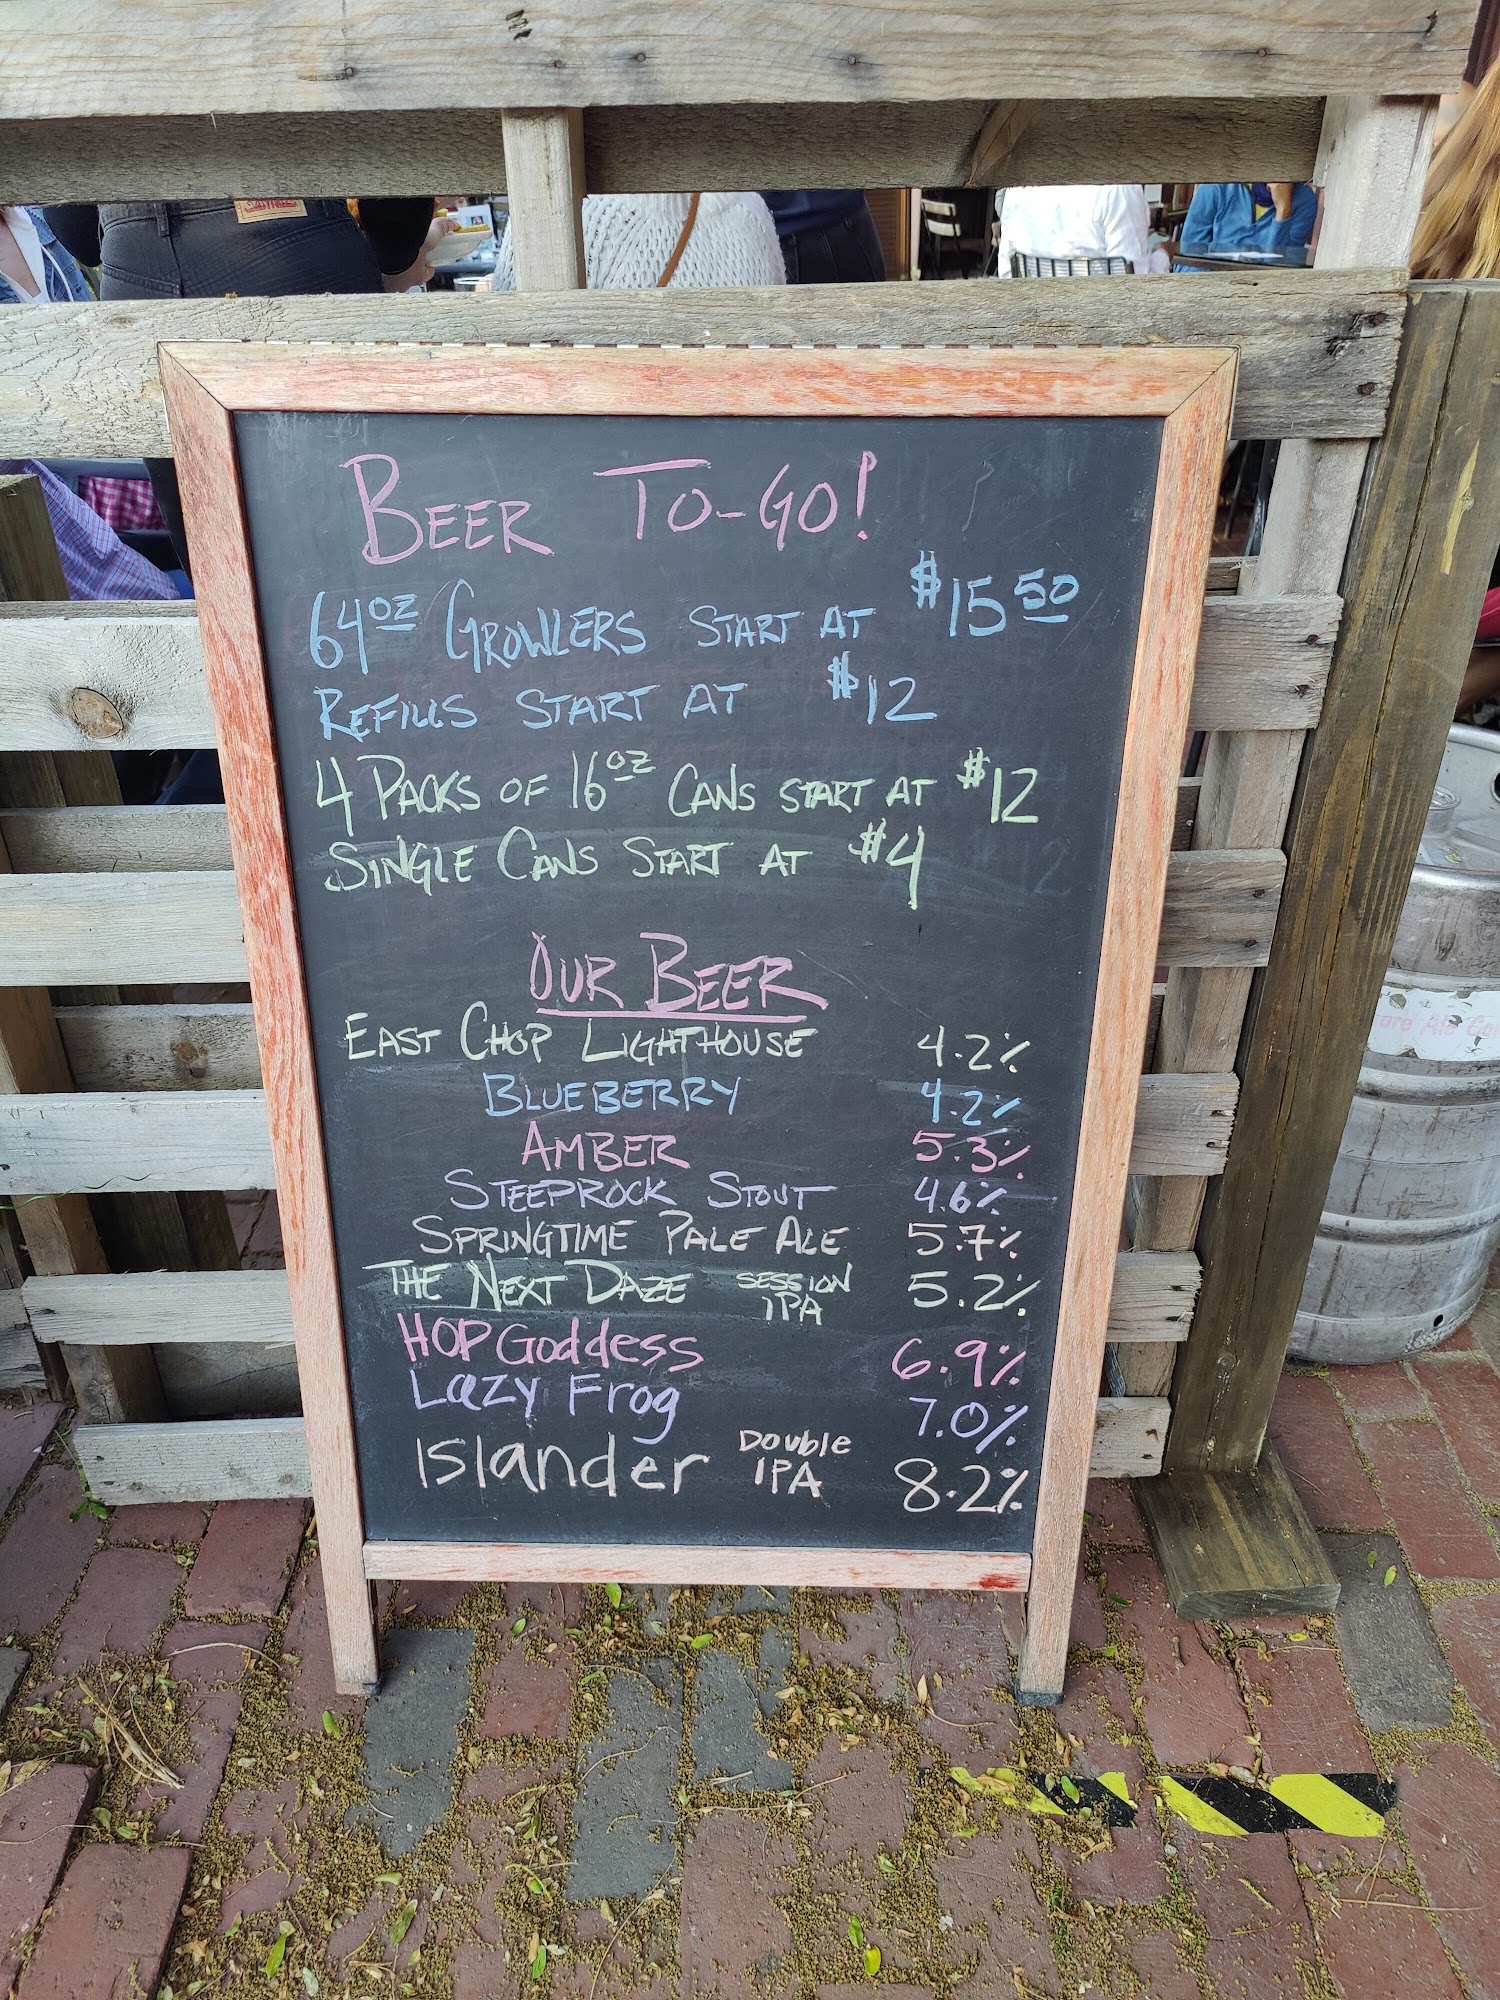 BEER TO-GO!
64OZ GROWLERS START AT $15 50
REFILLS START AT $12
4 PACKS OF 16OZ CANS START AT $12
SINGLE CANS START AT $4
OUR BEER
EAST CHOP LIGHTHOUSE 4.2%
BLUEBERRY 4.2%
AMBER 5.3%
STEEPROCK STOUT 4.6%
SPRINGTIME PALE ALE 5.7%
THE NEXT DAZE SESSION IPA 5.2%
HOP GOddess 6.9%
LAZY FROg 7.0%
Islander Double IPA 8.2%